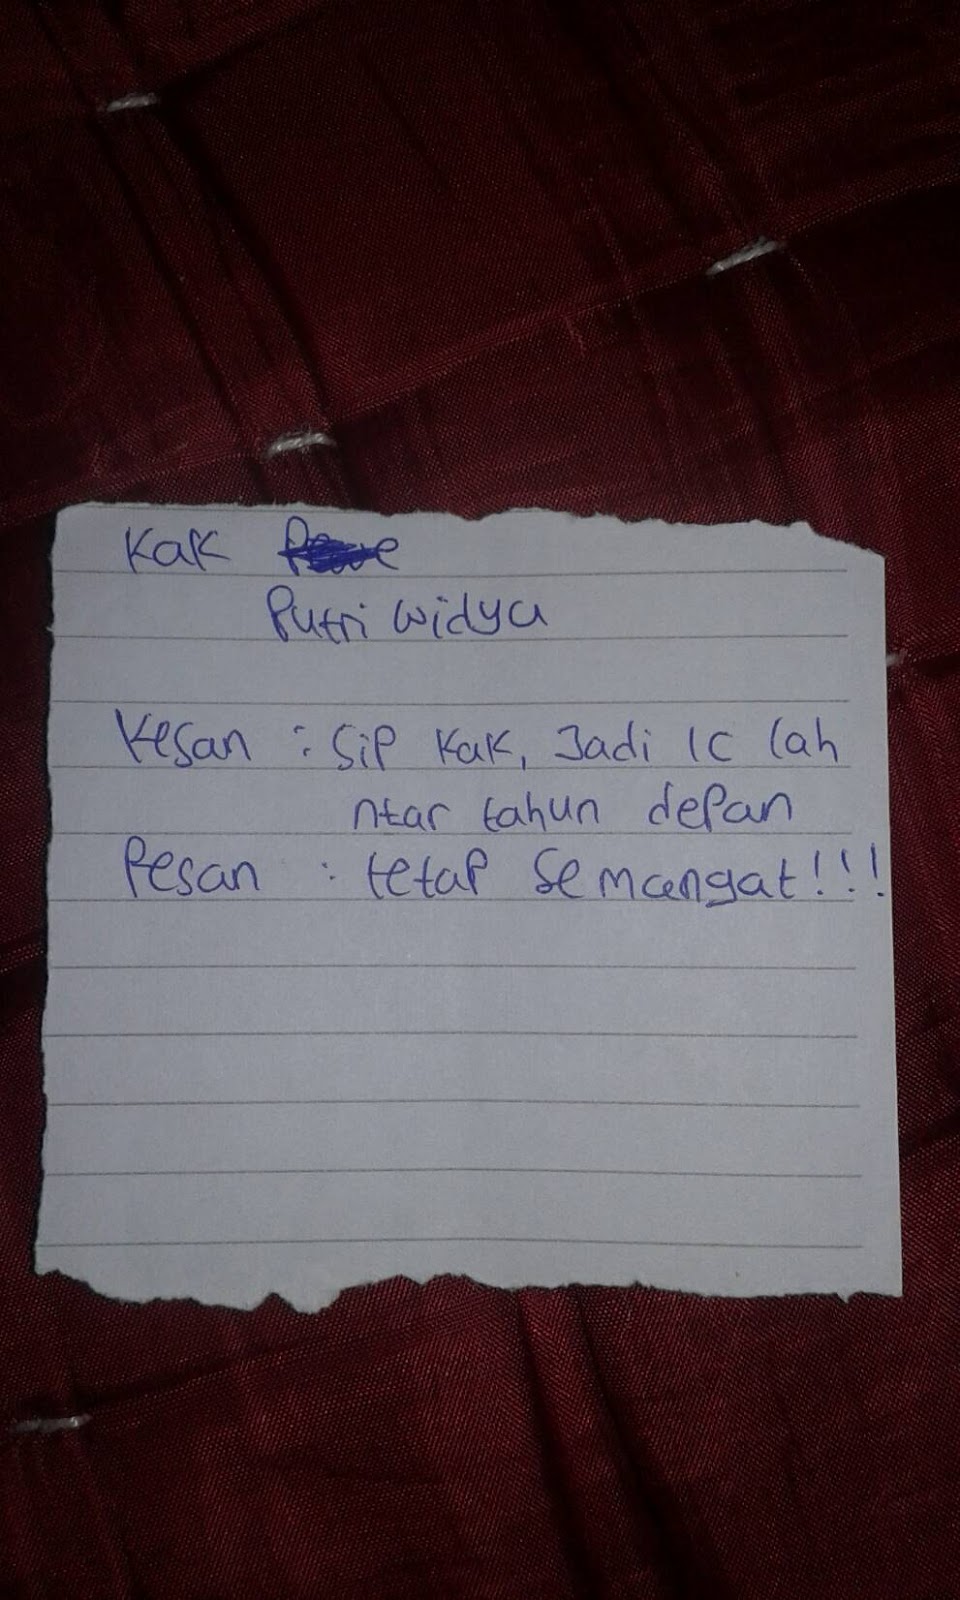 Kak
Putri Widya
Kesan : Sip Kak, Jadi IC lah
ntar tahun depan
Pesan : tetap Semangat!!!